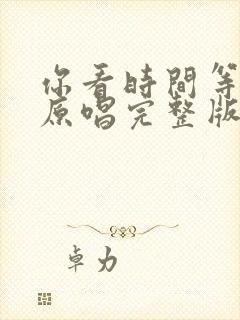 你看時間等
原唱完整版
卓力